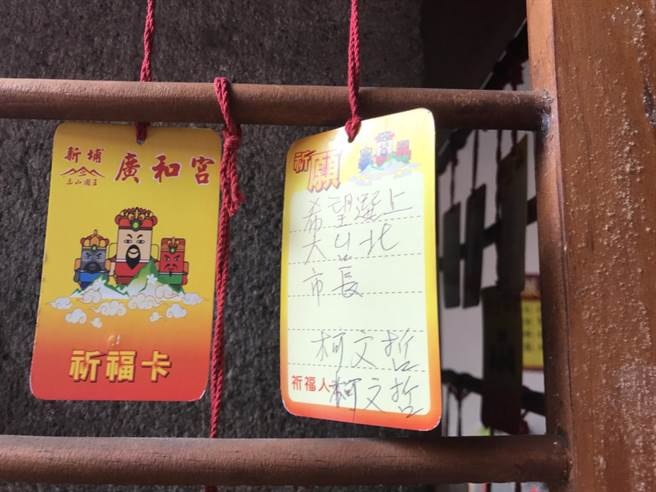 新埔
三山國王
廣和宮
祈福卡
祈願
希望選上
大台北
市長
柯文哲
祈福人
柯文哲